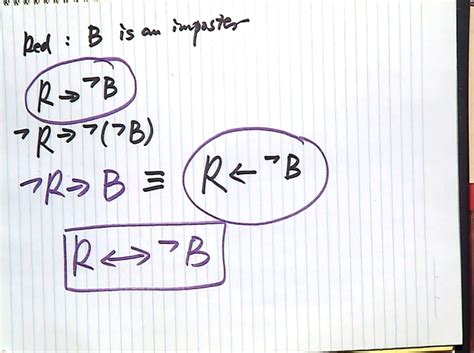 Red : B is an imposter
R → ¬B
¬R → ¬(¬B)
¬R → B ≡ R ← ¬B
R ↔ ¬B